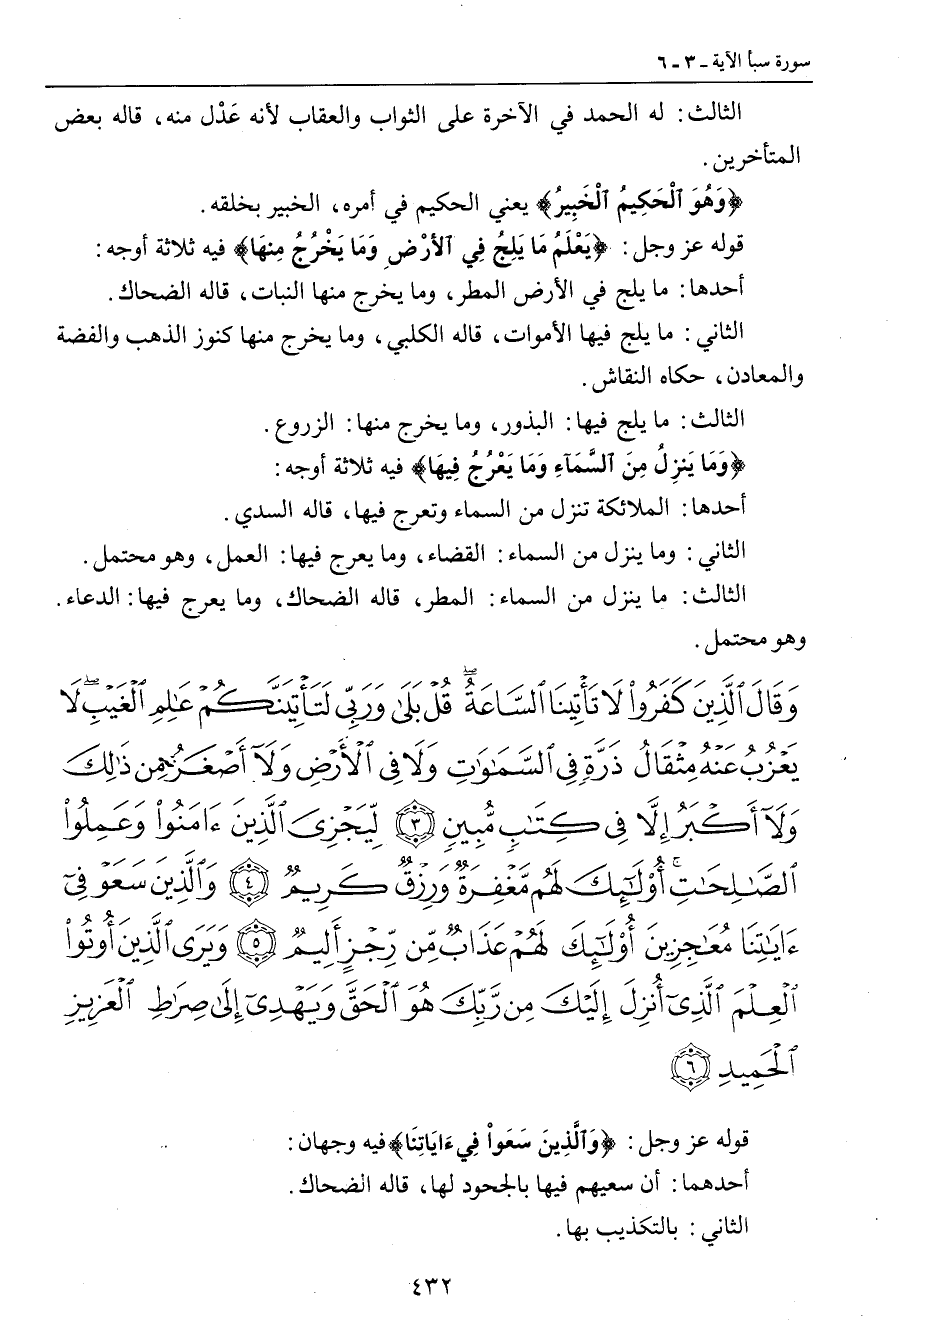 سورة سبأ الآية ـ ٣ ـ ٦
الثالث: له الحمد في الآخرة على الثواب والعقاب لأنه عَدْل منه، قاله بعض
المتأخرين.
﴿وَهُوَ ٱلْحَكِيمُ ٱلْخَبِيرُ﴾ يعني الحكيم في أمره، الخبير بخلقه.
قوله عز وجل: ﴿يَعْلَمُ مَا يَلِجُ فِي ٱلأَرْضِ وَمَا يَخْرُجُ مِنهَا﴾ فيه ثلاثة أوجه:
أحدها: ما يلج في الأرض المطر، وما يخرج منها النبات، قاله الضحاك.
الثاني: ما يلج فيها الأموات، قاله الكلبي، وما يخرج منها كنوز الذهب والفضة
والمعادن، حكاه النقاش.
الثالث: ما يلج فيها: البذور، وما يخرج منها: الزروع.
﴿وَمَا يَنزِلُ مِنَ ٱلسَّمَآءِ وَمَا يَعْرُجُ فِيهَا﴾ فيه ثلاثة أوجه:
أحدها: الملائكة تنزل من السماء وتعرج فيها، قاله السدي.
الثاني: وما ينزل من السماء: القضاء، وما يعرج فيها: العمل، وهو محتمل.
الثالث: ما ينزل من السماء: المطر، قاله الضحاك، وما يعرج فيها: الدعاء.
وهو محتمل.
وَقَالَ ٱلَّذِينَ كَفَرُواْ لَا تَأْتِينَا ٱلسَّاعَةُۖ قُلْ بَلَىٰ وَرَبِّى لَتَأْتِيَنَّكُمْ عَٰلِمِ ٱلْغَيْبِۖ لَا
يَعْزُبُ عَنْهُ مِثْقَالُ ذَرَّةٍ فِى ٱلسَّمَٰوَٰتِ وَلَا فِى ٱلْأَرْضِ وَلَآ أَصْغَرُ مِن ذَٰلِكَ
وَلَآ أَكْبَرُ إِلَّا فِى كِتَٰبٍ مُّبِينٍ ٣ لِّيَجْزِىَ ٱلَّذِينَ ءَامَنُواْ وَعَمِلُواْ
ٱلصَّٰلِحَٰتِۚ أُوْلَٰٓئِكَ لَهُم مَّغْفِرَةٌ وَرِزْقٌ كَرِيمٌ ٤ وَٱلَّذِينَ سَعَوْ فِىٓ
ءَايَٰتِنَا مُعَٰجِزِينَ أُوْلَٰٓئِكَ لَهُمْ عَذَابٌ مِّن رِّجْزٍ أَلِيمٌ ٥ وَيَرَى ٱلَّذِينَ أُوتُواْ
ٱلْعِلْمَ ٱلَّذِىٓ أُنزِلَ إِلَيْكَ مِن رَّبِّكَ هُوَ ٱلْحَقَّ وَيَهْدِىٓ إِلَىٰ صِرَٰطِ ٱلْعَزِيزِ
ٱلْحَمِيدِ ٦
قوله عز وجل: ﴿وَٱلَّذِينَ سَعَواْ فِي ءَايَاتِنَا﴾ فيه وجهان:
أحدهما: أن سعيهم فيها بالجحود لها، قاله الضحاك.
الثاني: بالتكذيب بها.
٤٣٢